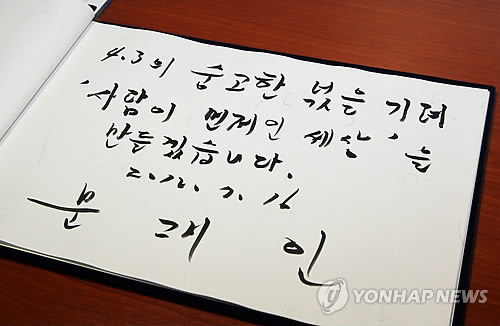 4.3의 숭고한 넋을 기려
'사람이 먼저인 세상'을
만들겠습니다.
2012. 7. 16
문 재 인
YONHAP NEWS